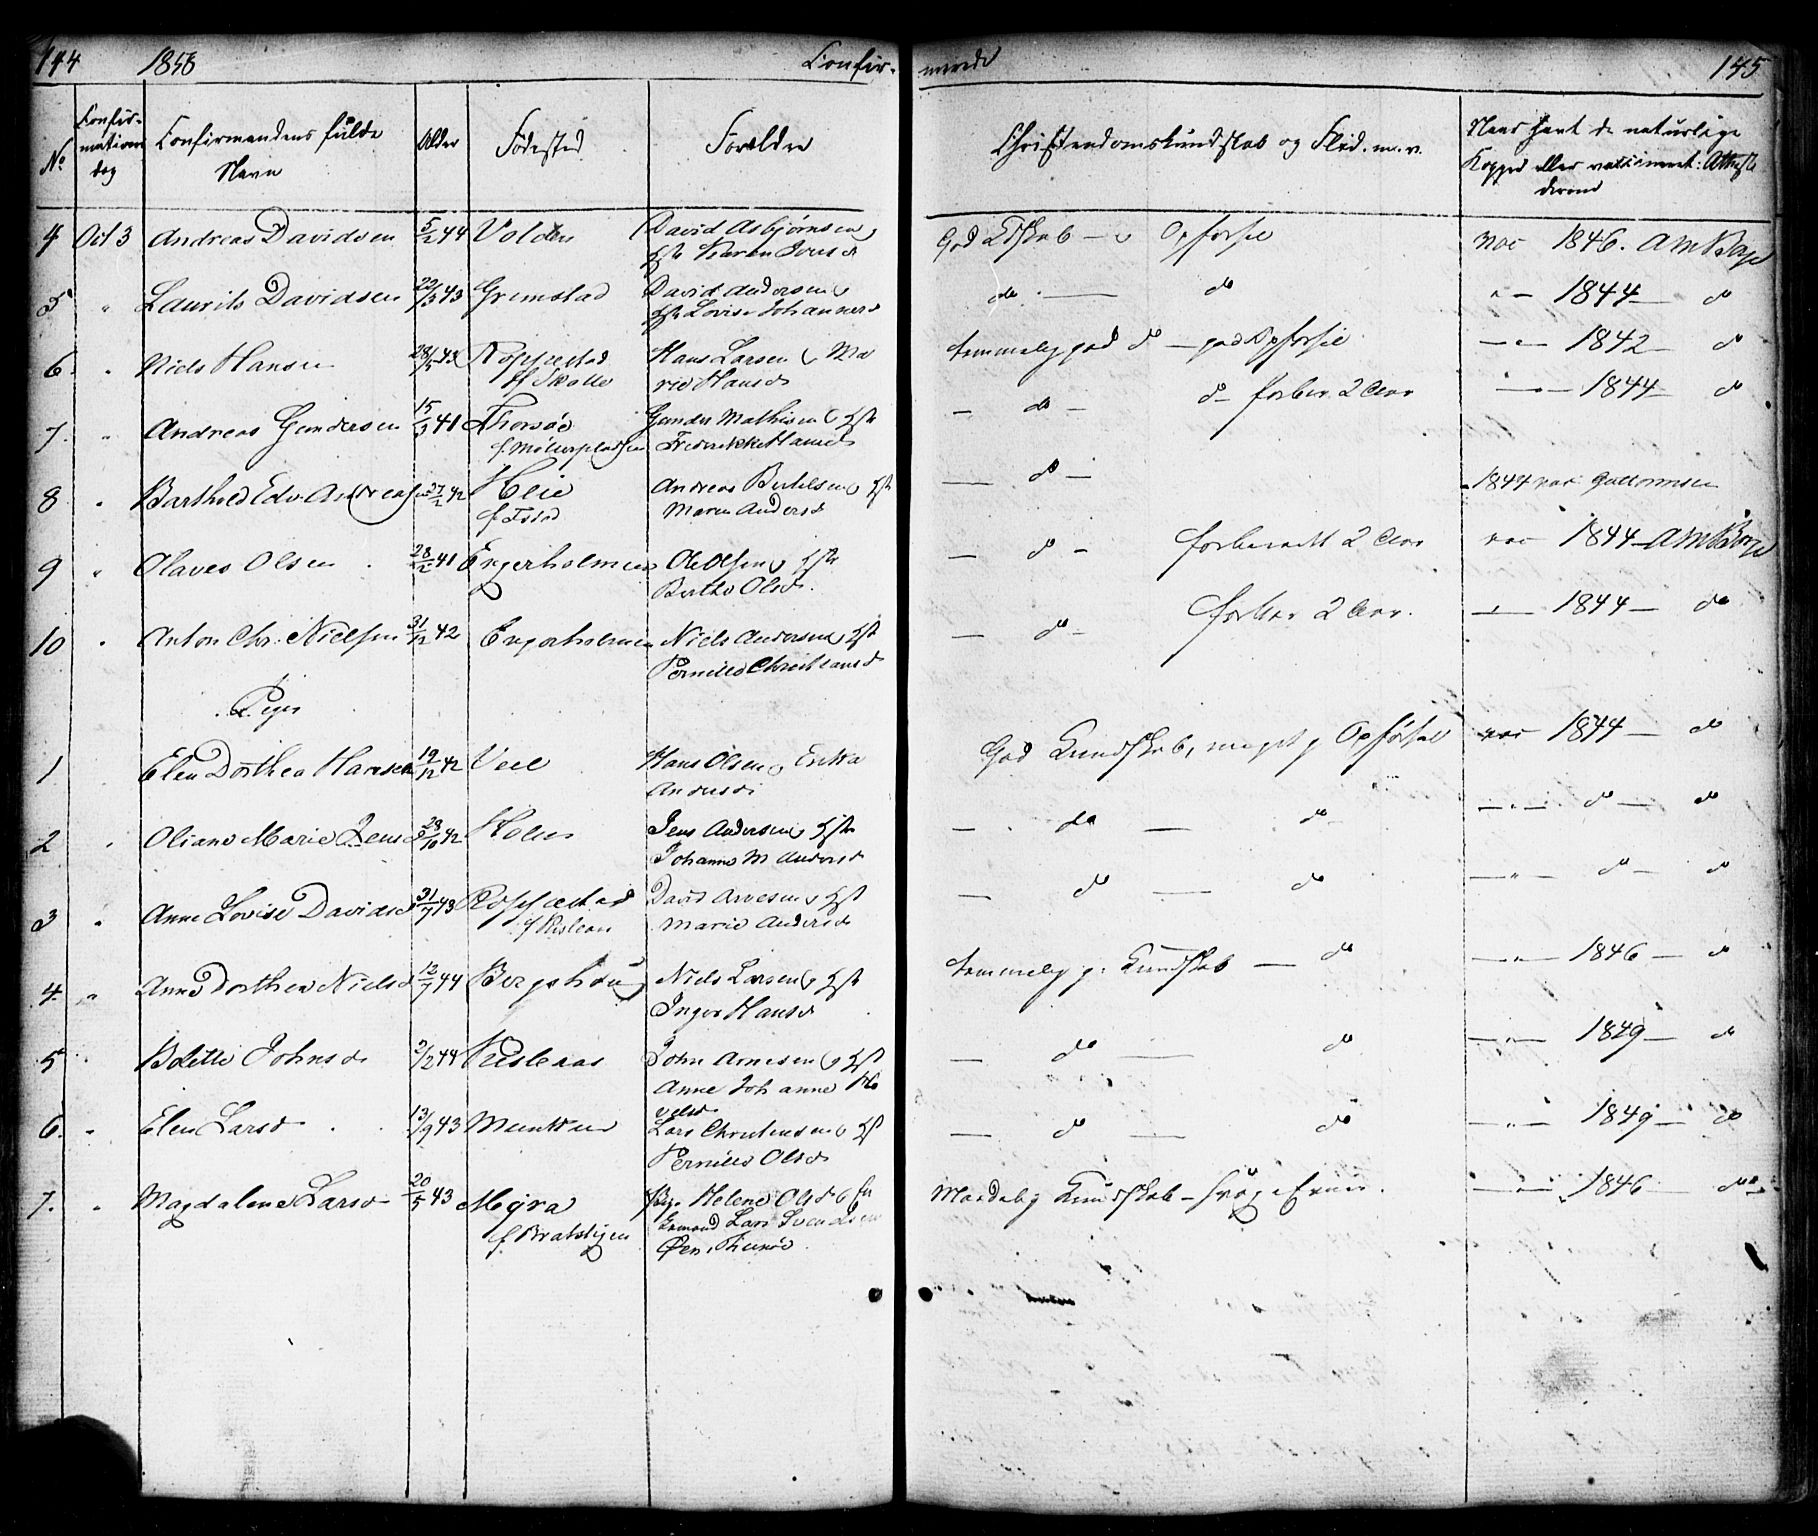 144 1858 Confir- merede 145
No Confir- mations dag Confirmandens fulde Navn Alder Fødested Forældre Christendomskundskab og Flid. m.v. Naar havt de naturlige Kopper eller vaccineret: Attest derom
4 Oct 3 Andreas Davidsen 5/2 44 Volden David Asbjørnsen, Hst Karen Jensd God Kdskab — o Opførsel vac 1846. AMBorge
5 " Laurits Davidsen 22/3 43 Grimstad David Andersen, Hst Lovise Johannesd do — do " — 1844 — do
6 " Niels Hansen 28/5 43 Roppestad Hans Larsen, Ma rie Hansd temmelig god do — god Opførsel — " — 1842 — do
7. " Andreas Gundersen 15/3 41 Thorsøe f. Møllerpladsen Gunder Mathisen, Hst Frederikke Hansd — do — do forber. 2 Aar — " — 1844 — do
8 " Barthold Edv. Andreasen 27/2 42 Heie Andreas Bertelsen, Hst Maren Andersd — do — 1844 vac: Guttormsen
9 " Olaves Olsen 28/2 41 Engerholmen Ole Olsen, Hst Berthe Olsd. — do — forberedt 2 Aar vac 1844 — AMBorge
10 " Anton Chr. Nielsen 31/12 42 Engerholmen Niels Andersen, Hst Pernille Christiansd — do — forber 2 Aar. — " — 1844 — do
Piger
1 Elen Dorthea Hansen 19/12 42 Veie Hans Olsen, Erika Andersd God Kundskab, meget g Opførsel vac 1844 — do
2 " Oliane Marie Jensd 23/10 42 Holen Jens Andersen, Hst Johanne M Andersd — do — do — " — do — do
3 " Anne Lovise Davidsd 31/7 43 Roppestad David Arvesen, Hst Marie Andersd — do — do — " — do — do
4. " Anne Dorthea Nielsd 12/7 44 Bergshoug Niels Larsen, Hst Inger Hansd temmelig g. Kundskab — do — " — 1846 — do
5 " Bolette Johnsd 2/2 44 Risleaas John Arnesen, Hst Anne Johanne — do — do — " — 1849 — do
6. " Elen Larsd 13/9 43 Lars Christensen, Hst Pernille Olsd — do — do — " — 1849 — do
7. " Magdalene Larsd 20/5 43 Myra f. Bratstigen Pige Helene Olsd, Lars Svendsen Øen, Maadelig Kundskab — — " — 1846 do